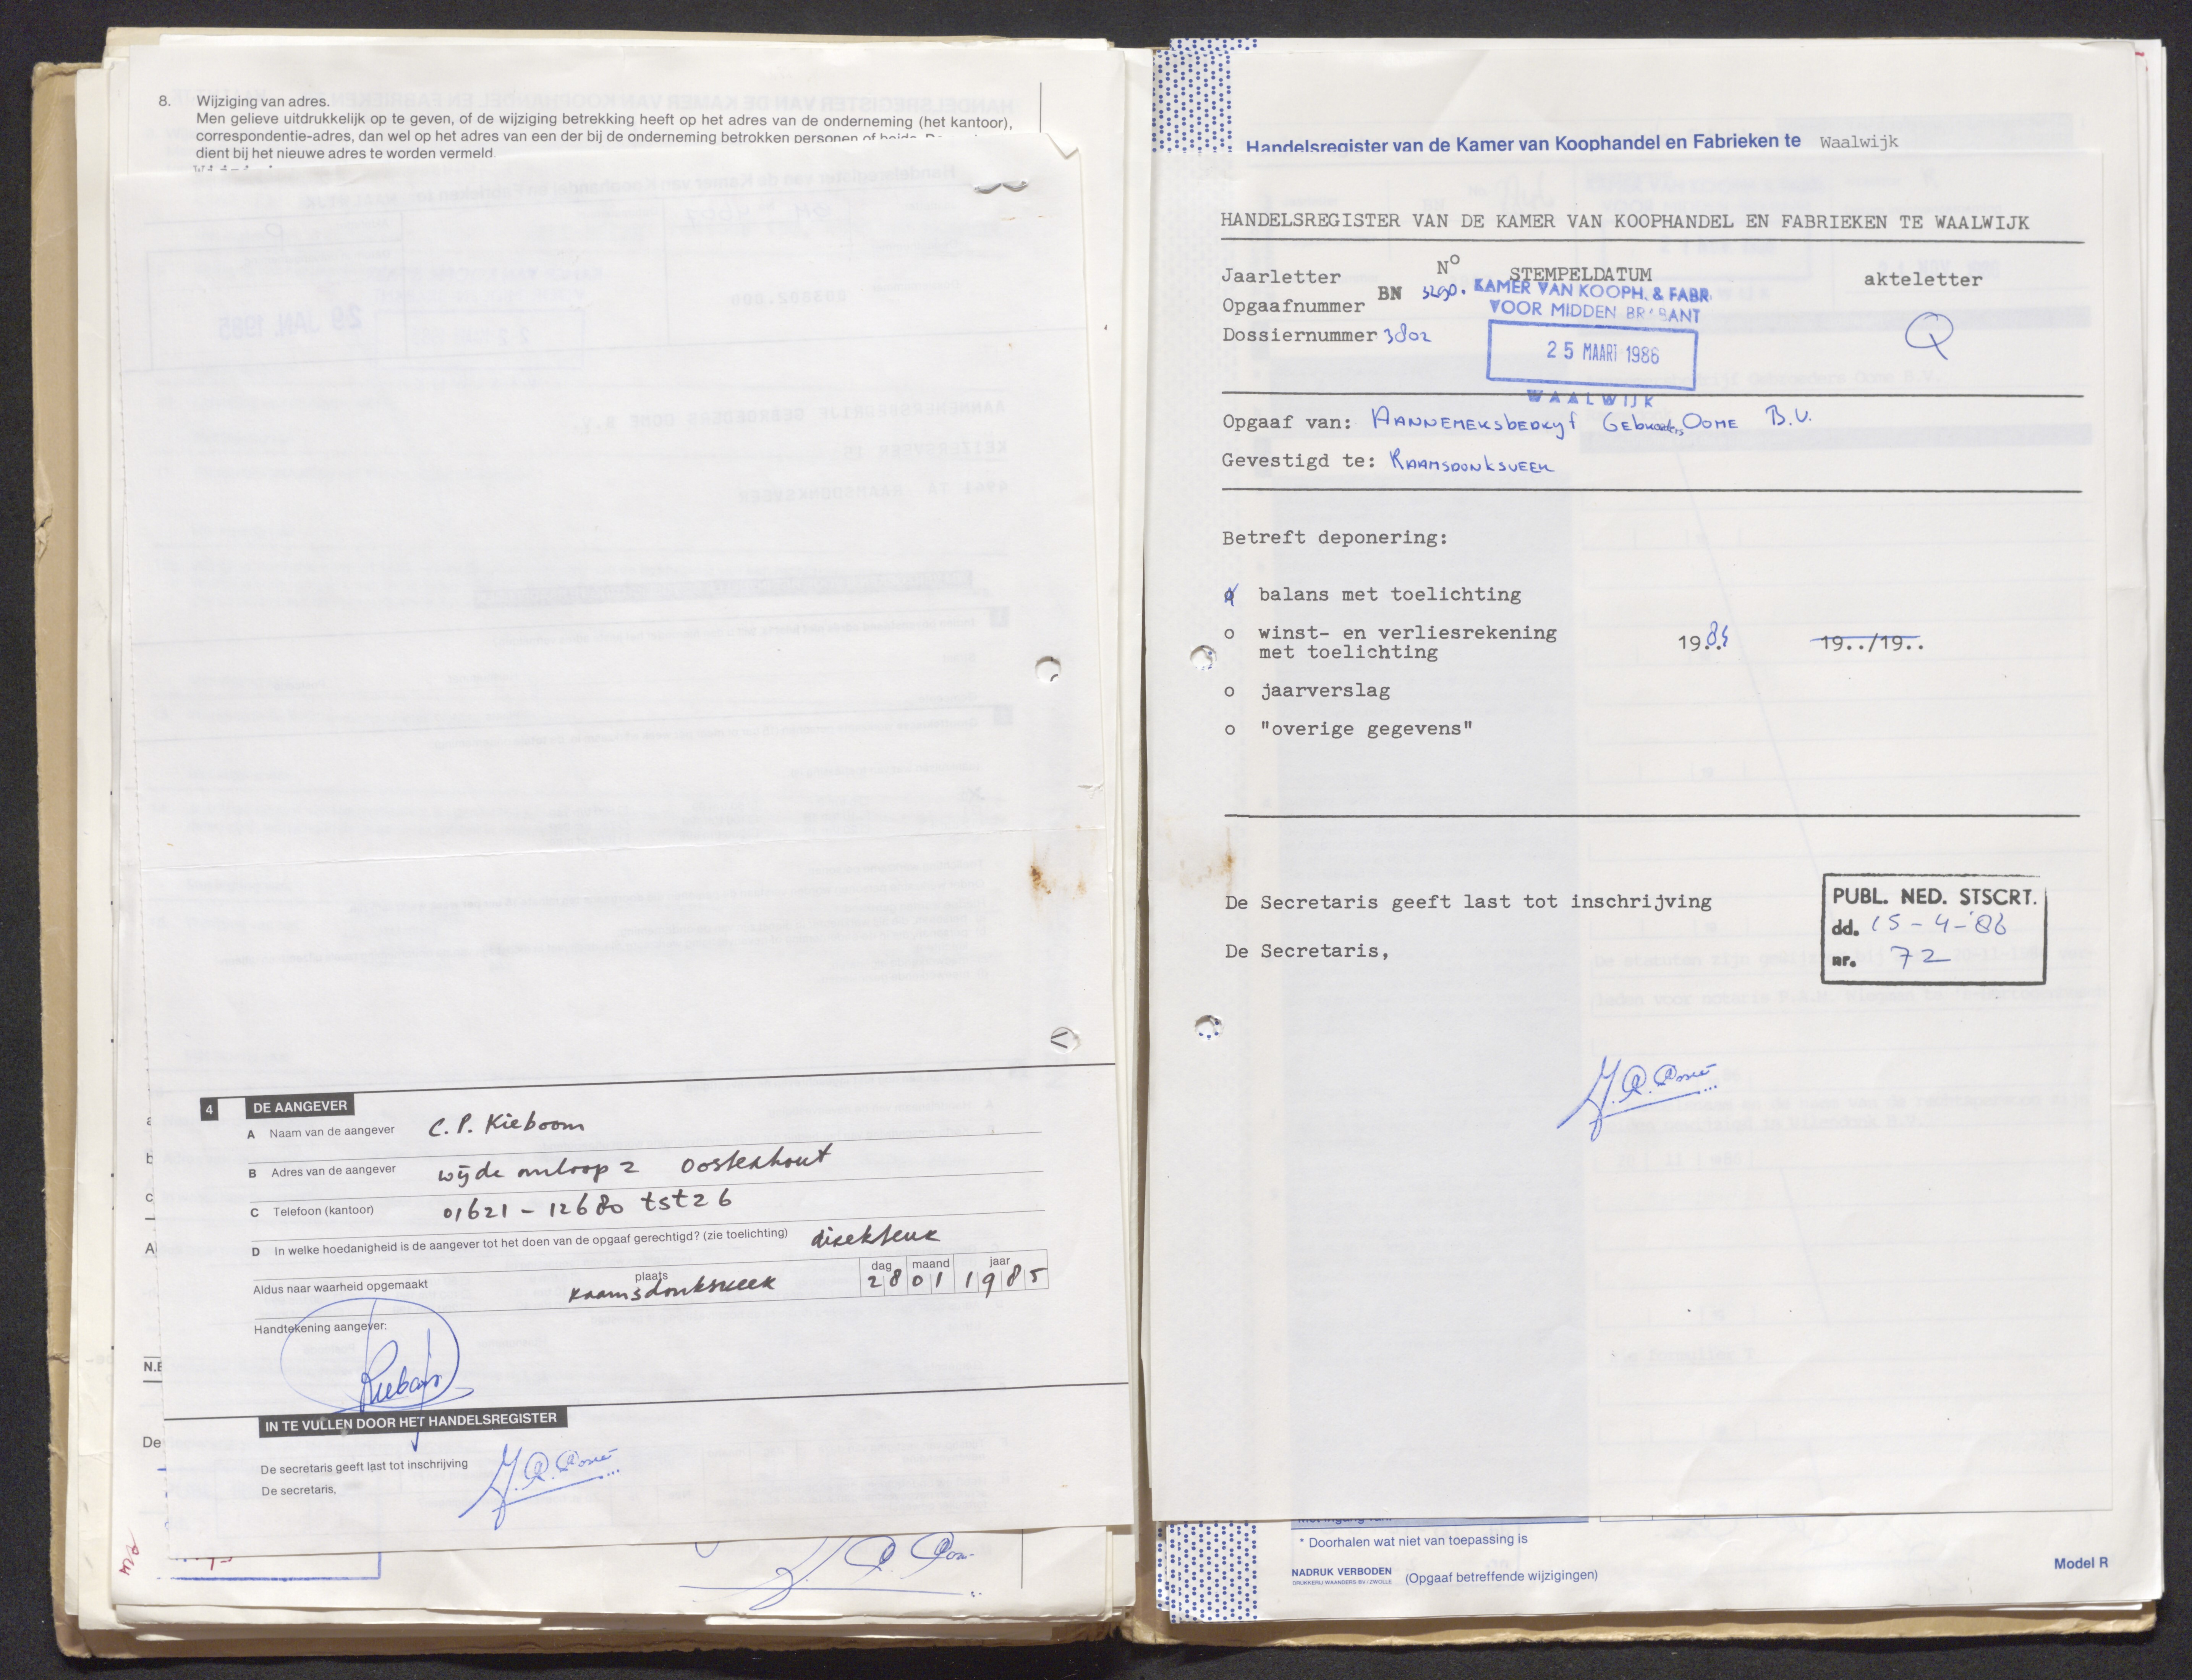 8. Wijziging van adres.
Men gelieve uitdrukkelijk op te geven, of de wijziging betrekking heeft op het adres van de onderneming (het kantoor),
correspondentie-adres, dan wel op het adres van een der bij de onderneming betrokken personen of beide. De
dient bij het nieuwe adres te worden vermeld.
4 DE AANGEVER
A Naam van de aangever C. P. Kieboom
B Adres van de aangever wijde omloop 2 Oosterhout
C Telefoon (kantoor) 01621 - 12680 tst 26
D In welke hoedanigheid is de aangever tot het doen van de opgaaf gerechtigd? (zie toelichting) direkteur
dag maand jaar
Aldus naar waarheid opgemaakt plaats Raamsdonksveer 28 01 1985
Handtekening aangever:
IN TE VULLEN DOOR HET HANDELSREGISTER
De secretaris geeft last tot inschrijving
De secretaris,
a
b
c
A
N.B
De
Handelsregister van de Kamer van Koophandel en Fabrieken te Waalwijk
HANDELSREGISTER VAN DE KAMER VAN KOOPHANDEL EN FABRIEKEN TE WAALWIJK
Jaarletter No STEMPELDATUM akteletter
Opgaafnummer BN 5290. KAMER VAN KOOPH. & FABR.
VOOR MIDDEN BRABANT
Dossiernummer 3802 Q
25 MAART 1986
WAALWIJK
Opgaaf van: AANNEMERSbedRYf Gebroeders OOME B.V.
Gevestigd te: RAAMSDONKSVEER
Betreft deponering:
o balans met toelichting
o winst- en verliesrekening
met toelichting 1984 19../19..
o jaarverslag
o "overige gegevens"
De Secretaris geeft last tot inschrijving
De Secretaris,
PUBL. NED. STSCRT.
dd. 15-4-'86
nr. 72
* Doorhalen wat niet van toepassing is
NADRUK VERBODEN
DRUKKERIJ WAANDERS BV / ZWOLLE
(Opgaaf betreffende wijzigingen)
Model R